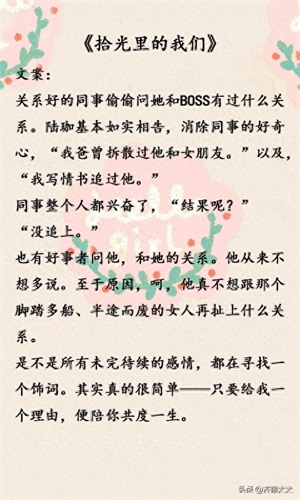 《拾光里的我们》
文案：
关系好的同事偷偷问她和BOSS有过什么关
系。陆珈基本如实相告，消除同事的好奇
心，“我爸曾拆散过他和女朋友。”以及，
“我写情书追过他。”
同事整个人都兴奋了，“结果呢？”
“没追上。”
也有好事者问他，和她的关系。他从来不
想多说。至于原因，呵，他真不想跟那个
脚踏多船、半途而废的女人再扯上什么关
系。
是不是所有未完待续的感情，都在寻找一
个饰词。其实真的很简单——只要给我一
个理由，便陪你共度一生。
hello
girl
头条 @芥糖大大